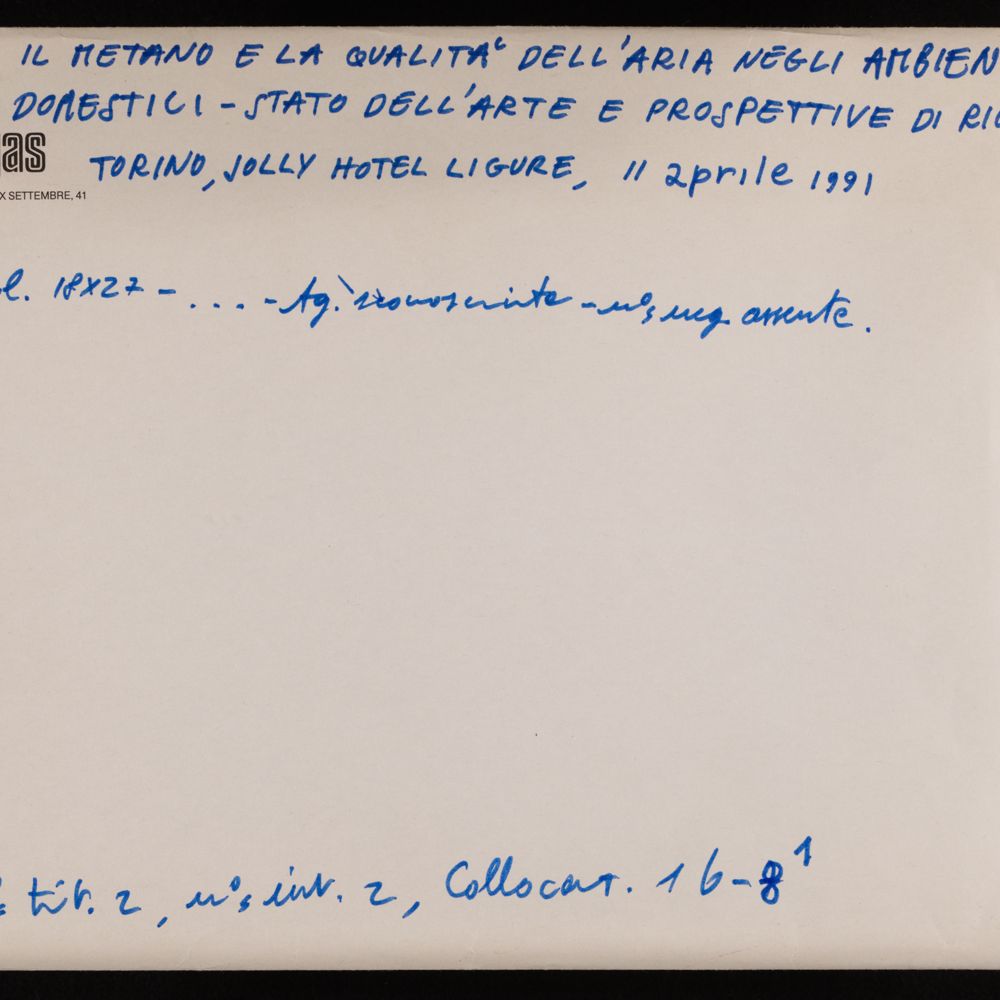 IL METANO E LA QUALITA' DELL'ARIA NEGLI AMBIEN
DOMESTICI - STATO DELL'ARTE E PROSPETTIVE DI RIC
gas
TORINO, JOLLY HOTEL LIGURE, 11 aprile 1991
X SETTEMBRE, 41
l. 18x27 - . . . - Ag. - n° neg assente.
tit. 2, n° int. 2, Collocaz. 16-8 1